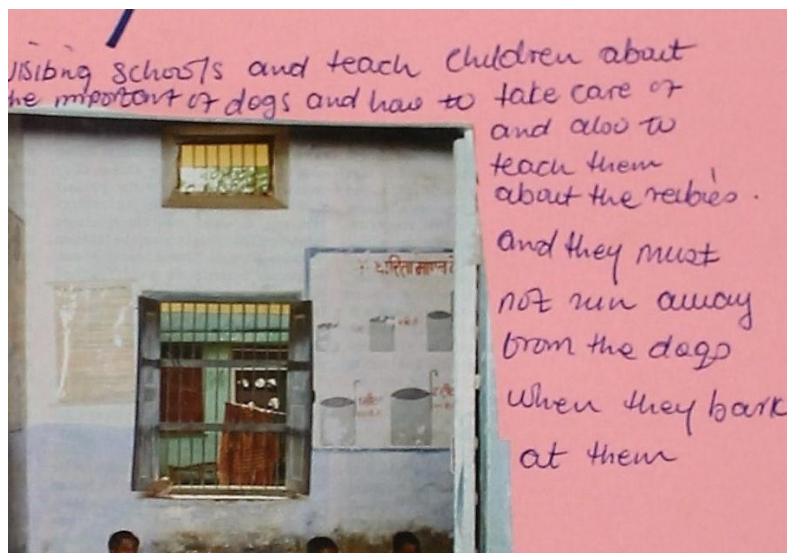 visiting schools and teach children about
he important of dogs and how to take care of
and also to
teach them
about the reibies.
and they must
not run away
from the dogs
when they bark
at them
धारिता मापन